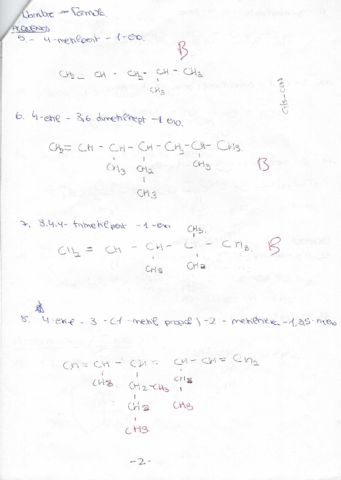 Nombre → Formula
ALQUENOS
5.- 4-metilpent - 1-eno.
B
CH2_ CH - CH2 - CH - CH3
CH3
CH2-CH3
6. 4-etil - 3,6 dimetilhept -1 eno.
CH2= CH - CH - CH - CH2 - CH - CH3.
CH3 CH2 CH3
CH3
B
7. 3.4.4- trimetilpent - 1-eno
CH3.
CH2 = CH - CH - C - CH3.
CH3 CH3
B
8. 4-etil - 3 - (1-metil propil) -2 - metilhexa -1,3,5-trieno
CH= CH - CH = CH - CH = CH2
CH3 CH2-CH3 CH2
CH2 CH3
CH3
-2-